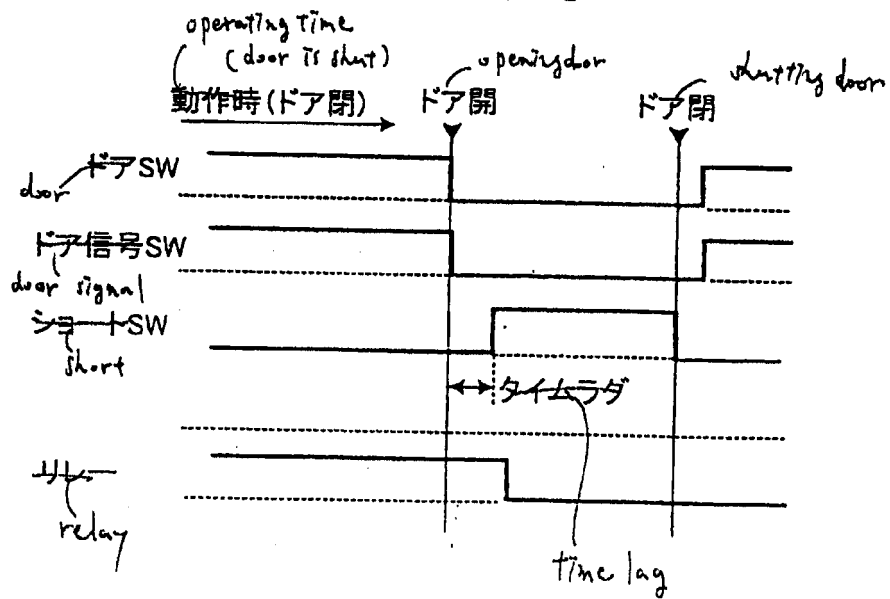 operating time
(door is shut)
opening door
shutting door
動作時(ドア閉)
ドア開
ドア閉
ドアSW
door
ドア信号SW
door signal
ショートSW
short
タイムラダ
リレー
relay
time lag